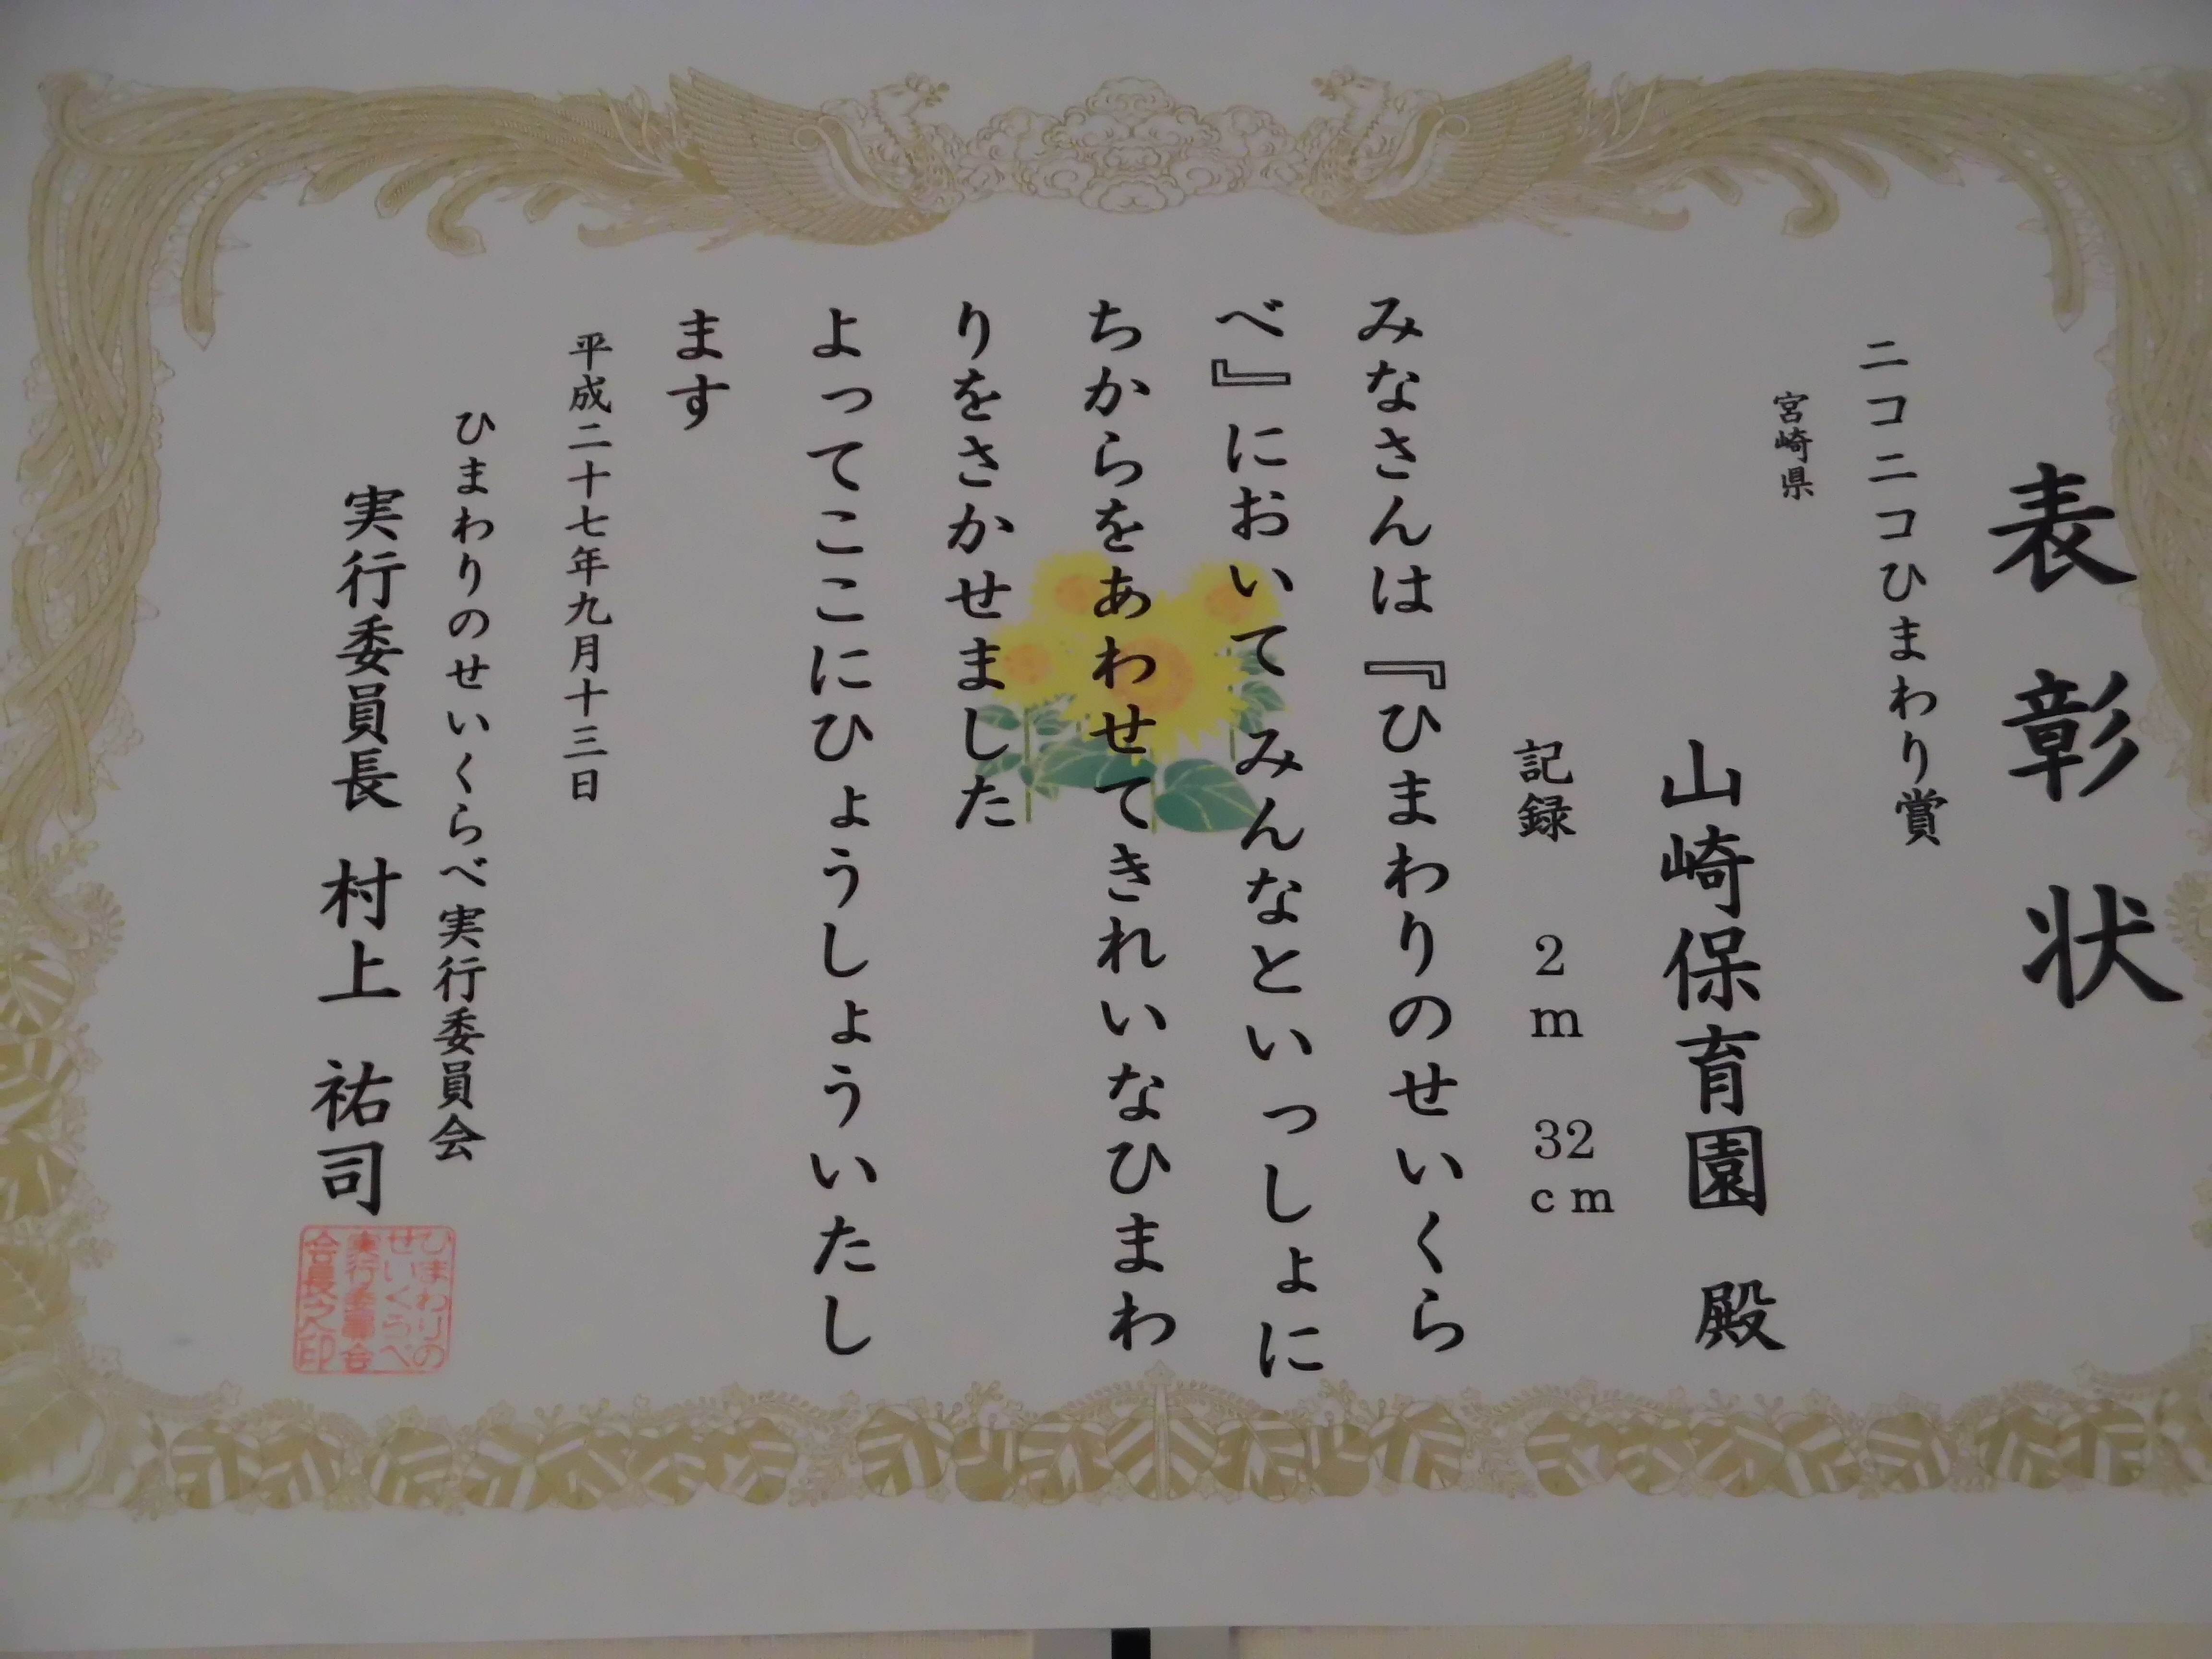 表彰状
ニコニコひまわり賞
宮崎県
山崎保育園 殿
記録 2m 32cm
みなさんは『ひまわりのせいくら
べ』においてみんなといっしょに
ちからをあわせてきれいなひまわ
りをさかせました
よってここにひょうしょういたし
ます
平成二十七年九月十三日
ひまわりのせいくらべ実行委員会
実行委員長 村上 祐司
ひまわりの
せいくらべ
実行委員会
会長之印